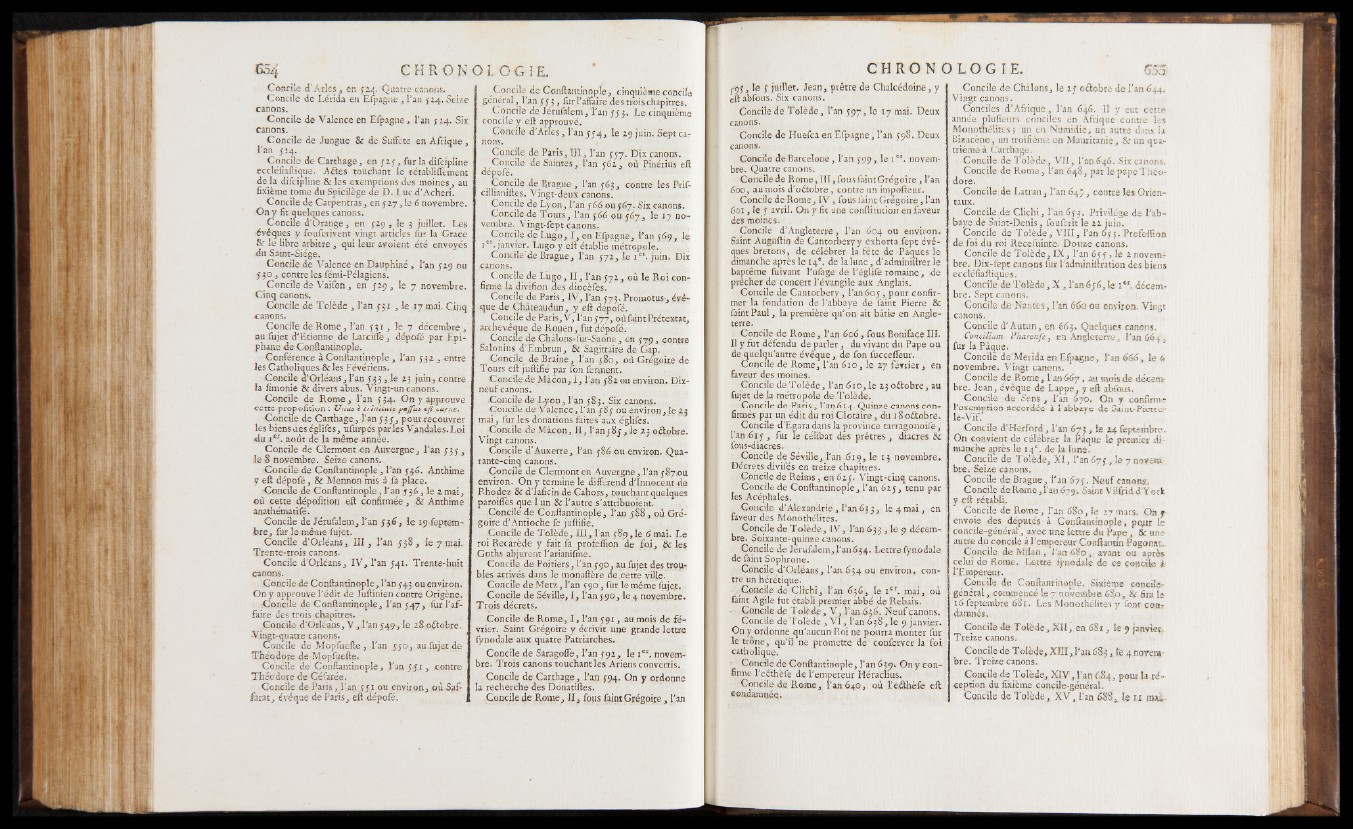 654 CHRONOLOGIE.
Concile d'Arles, en 524. Quatre canons.
Concile de Lérida en Eſpagne, l'an 524. Seize
canons.
Concile de Valence en Eſpagne, l'an 524. Six
canons.
Concile de Jungue & de Suffete en Afrique,
l'an 524.
Concile de Carthage, en 525, ſur la diſcipline
eccléſiaſtique. Actes touchant le rétabliſſement
de la diſcipline & les exemptions des moines, au
ſixième tome du Spicilège de D. Luc d'Acheri.
Concile de Carpentras, en 527, le 6 novembre.
On y fit quelques canons.
Concile d'Orange, en 529, le 3 juillet. Les
évêques y ſouſcrivent vingt articles ſur la Grace
& le libre arbitre, qui leur avoient été envoyés
du Saint-Siége.
Concile de Valence en Dauphiné, l'an 529 ou
530, contre les ſémi-Pélagiens.
Concile de Vaiſon, en 529, le 7 novembre.
Cinq canons.
Concile de Tolède, l'an 531, le 17 mai. Cinq
canons.
Concile de Rome, l'an 531, le 7 décembre,
au ſujet d'Etienne de Lariſſe, dépoſé par Epi-
phane de Conſtantinople.
Conférence à Conſtantinople, l'an 532, entre
les Catholiques & les Févériens.
Concile d'Orléans, l'an 533, le 23 juin, contre
la ſimonie & divers abus. Vingt-un canons.
Concile de Rome, l'an 534. On y approuve
cette propoſition : Unus è trinitate paſſus eſt carne.
Concile de Carthage, l'an 535, pour recouvrer
les biens des égliſes, uſurpés par les Vandales. Loi
du 1er. août de la même année.
Concile de Clermont en Auvergne, l'an 535,
le 8 novembre. Seize canons.
Concile de Conſtantinople, l'an 536. Anthime
y eſt dépoſé, & Mennon mis à ſa place.
Concile de Conſtantinople, l'an 536, le 2 mai,
où cette dépoſition eſt confirmée, & Anthime
anathématiſé.
Concile de Jéruſalem, l'an 536, le 19 ſeptem-
bre, ſur le même ſujet.
Concile d'Orléans, III, l'an 538, le 7 mai.
Trente-trois canons.
Concile d'Orléans, IV, l'an 541. Trente-huit
canons.
Concile de Conſtantinople, l'an 543 ou environ.
On y approuve l'édit de Juſtinien contre Origène.
Concile de Conſtantinople, l'an 547, ſur l'af-
faire des trois chapitres.
Concile d'Orléans, V, l'an 549, le 28 octobre.
Vingt-quatre canons.
Concile de Mopſueſte, l'an 550, au ſujet de
Théodore de Mopſueſte.
Concile de Conſtantinople, l'an 551, contre
Théodore de Céſarée.
Concile de Paris, l'an 551 ou environ, où Saf-
farat, évêque de Paris, eſt dépoſé.
Concile de Conſtantinople, cinquième concile
général, l'an 553, ſur l'affaire des trois chapitres.
Concile de Jéruſalem, l'an 553. Le cinquième
concile y eſt approuvé.
Concile d'Arles, l'an 554, le 29 juin. Sept ca-
nons.
Concile de Paris, III, l'an 557. Dix canons.
Concile de Saintes, l'an 562, où Pinérius eſt
dépoſé.
Concile de Brague, l'an 563, contre les Priſ-
cillianiſtes. Vingt-deux canons.
Concile de Lyon, l'an 566 ou 567. Six canons.
Concile de Tours, l'an 566 ou 567, le 17 no-
vembre. Vingt-ſept canons.
Concile de Lugo, I, en Eſpagne, l'an 569, le
1er. janvier. Lugo y eſt établie métropole.
Concile de Brague, l'an 572, le 1er. juin. Dix
canons.
Concile de Lugo, II, l'an 572, où le Roi con-
firme la diviſion des diocèſes.
Concile de Paris, IV, l'an 573. Promotus, évê-
que de Châteaudun, y eſt dépoſé.
Concile de Paris, V, l'an 577, où ſaint Prétextat,
archevêque de Rouen, fut dépoſé.
Concile de Châlons-ſur-Saone, en 579, contre
Salonius d'Embrun, & Sagittaire de Gap.
Concile de Braine, l'an 580, où Grégoire de
Tours eſt juſtifié par ſon ſerment.
Concile de Mâcon, I, l'an 582 ou environ. Dix-
neuf canons.
Concile de Lyon, l'an 583. Six canons.
Concile de Valence, l'an 585 ou environ, le 23
mai, ſur les donations faites aux égliſes.
Concile de Mâcon, II, l'an 585, le 23 octobre.
Vingt canons.
Concile d'Auxerre, l'an 586 ou environ. Qua-
rante-cinq canons.
Concile de Clermont en Auvergne, l'an 587 ou
environ. On y termine le différend d'Innocent de
Rhodez & d'Urſicin de Cahors, touchant quelques
paroiſſes que l'un & l'autre s'attribuoient.
Concile de Conſtantinople, l'an 588, où Gré-
goire d'Antioche ſe juſtifie.
Concile de Tolède, III, l'an 589, le 6 mai. Le
roi Recarède y fait ſa profeſſion de foi, & les
Goths abjurent l'arianiſme.
Concile de Poitiers, l'an 590, au ſujet des trou-
bles arrivés dans le monaſtère de cette ville.
Concile de Metz, l'an 590, ſur le même ſujet.
Concile de Séville, I, l'an 590, le 4 novembre.
Trois décrets.
Concile de Rome, I, l'an 591, au mois de fé-
vrier. Saint Grégoire y écrivit une grande lettre
ſynodale aux quatre Patriarches.
Concile de Saragoſſe, l'an 592, le 1er. novem-
bre. Trois canons touchant les Ariens convertis.
Concile de Carthage, l'an 594. On y ordonne
la recherche des Donatiſtes.
Concile de Rome, II, ſous ſaint Grégoire, l'an
CHRONOLOGIE. 655
595, le 5 juillet. Jean, prêtre de Chalcédoine, y
eſt abſous. Six canons.
Concile de Tolède, l'an 597, le 17 mai. Deux
canons.
Concile de Hueſca en Eſpagne, l'an 598. Deux
canons.
Concile de Barcelone, l'an 599, le 1er. novem-
bre. Quatre canons.
Concile de Rome, III, ſous ſaint Grégoire, l'an
600, au mois d'octobre, contre un impoſteur.
Concile de Rome, IV, ſous ſaint Grégoire, l'an
601, le 5 avril. On y fit une conſtitution en faveur
des moines.
Concile d'Angleterre, l'an 604 ou environ.
Saint Auguſtin de Cantorbery y exhorta ſept évê-
ques bretons, de célébrer la fête de Pâques le
dimanche après le 14e. de la lune, d'adminiſtrer le
baptême ſuivant l'uſage de l'égliſe romaine, de
prêcher de concert l'évangile aux Anglais.
Concile de Cantorbery, l'an 605, pour confir-
mer la fondation de l'abbaye de ſaint Pierre &
ſaint Paul, la première qu'on ait bâtie en Angle-
terre.
Concile de Rome, l'an 606, ſous Boniface III.
Il y fut défendu de parler, du vivant du Pape ou
de quelqu'autre évêque, de ſon ſucceſſeur.
Concile de Rome, l'an 610, le 27 février, en
faveur des moines.
Concile de Tolède, l'an 610, le 23 octobre, au
ſujet de la métropole de Tolède.
Concile de Paris, l'an 614. Quinze canons con-
firmés par un édit du roi Clotaire, du 18 octobre.
Concile d'Egara dans la province tarragonoiſe,
l'an 615, ſur le célibat des prêtres, diacres &
ſous-diacres.
Concile de Séville, l'an 619, le 13 novembre.
Décrets diviſés en treize chapitres.
Concile de Reims, en 625. Vingt-cinq canons.
Concile de Conſtantinople, l'an 625, tenu par
les Acéphales.
Concile d'Alexandrie, l'an 633, le 4 mai, en
faveur des Monothélites.
Concile de Tolède, IV, l'an 633, le 9 décem-
bre. Soixante-quinze canons.
Concile de Jéruſalem, l'an 634. Lettre ſynodale
de ſaint Sophrone.
Concile d'Orléans, l'an 634 ou environ, con-
tre un hérétique.
Concile de Clichi, l'an 636, le 1er. mai, où
ſaint Agile fut établi premier abbé de Rebais.
Concile de Tolède, V, l'an 636. Neuf canons.
Concile de Tolède, VI, l'an 638, le 9 janvier.
On y ordonne qu'aucun Roi ne pourra monter ſur
le trône, qu'il ne promette de conſerver la foi
catholique.
Concile de Conſtantinople, l'an 639. On y con-
firme l'ecthèſe de l'empereur Héraclius.
Concile de Rome, l'an 640, où l'ecthèſe eſt
condamnée.
Concile de Châlons, le 25 octobre de l'an 644.
Vingt canons.
Conciles d'Afrique, l'an 646. Il y eut cette
année pluſieurs conciles en Afrique contre les
Monothélites; un en Numidie, un autre dans la
Bizacène, un troiſième en Mauritanie, & un qua-
trième à Carthage.
Concile de Tolède, VII, l'an 646. Six canons.
Concile de Rome, l'an 648, par le pape Théo-
dore.
Concile de Latran, l'an 649, contre les Orien-
taux.
Concile de Clichi, l'an 654. Privilége de l'ab-
baye de Saint-Denis, ſouſcrit le 22 juin.
Concile de Tolède, VIII, l'an 653. Profeſſion
de foi du roi Receſuinte. Douze canons.
Concile de Tolède, IX, l'an 655, le 2 novem-
bre. Dix-ſept canons ſur l'adminiſtration des biens
eccléſiaſtiques.
Concile de Tolède, X, l'an 656, le 1er. décem-
bre. Sept canons.
Concile de Nantes, l'an 660 ou environ. Vingt
canons.
Concile d'Autun, en 663. Quelques canons.
Concilium Pharenſe, en Angleterre, l'an 664,
ſur la Pâque.
Concile de Mérida en Eſpagne, l'an 666, le 6
novembre. Vingt canons.
Concile de Rome, l'an 667, au mois de décem-
bre. Jean, évêque de Lappe, y eſt abſous.
Concile de Sens, l'an 670. On y confirme
l'exemption accordée à l'abbaye de Saint-Pierre-
le-Vif.
Concile d'Herford, l'an 673, le 24 ſeptembre.
On convient de célébrer la Pâque le premier di-
manche après le 14e. de la lune.
Concile de Tolède, XI, l'an 675, le 7 novem-
bre. Seize canons.
Concile de Brague, l'an 675. Neuf canons.
Concile de Rome, l'an 679. Saint Vilfrid d'Yorck
y eſt rétabli.
Concile de Rome, l'an 680, le 27 mars. On y
envoie des députés à Conſtantinople, pour le
concile-général, avec une lettre du Pape, & une
autre du concile à l'empereur Conſtantin Pogonat.
Concile de Milan, l'an 680, avant ou après
celui de Rome. Lettre ſynodale de ce concile à
l'Empereur.
Concile de Conſtantinople. Sixième concile-
général, commencé le 7 novembre 680, & fini le
16 ſeptembre 681. Les Monothélites y ſont con-
damnés.
Concile de Tolède, XII, en 681, le 9 janvier.
Treize canons.
Concile de Tolède, XIII, l'an 683, le 4 novem-
bre. Treize canons.
Concile de Tolède, XIV, l'an 684, pour la ré-
ception du ſixième concile-général.
Concile de Tolède, XV, l'an 688, le 11 mai.